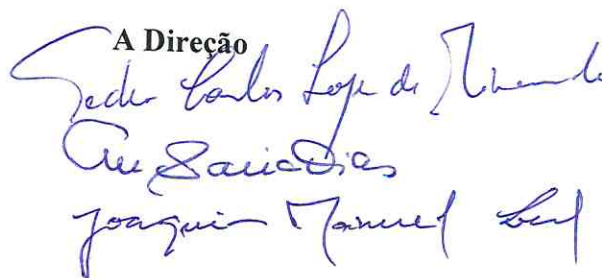 A Direção
Pedro Carlos Lopes de Miranda
Ana Dias
Joaquim Manuel